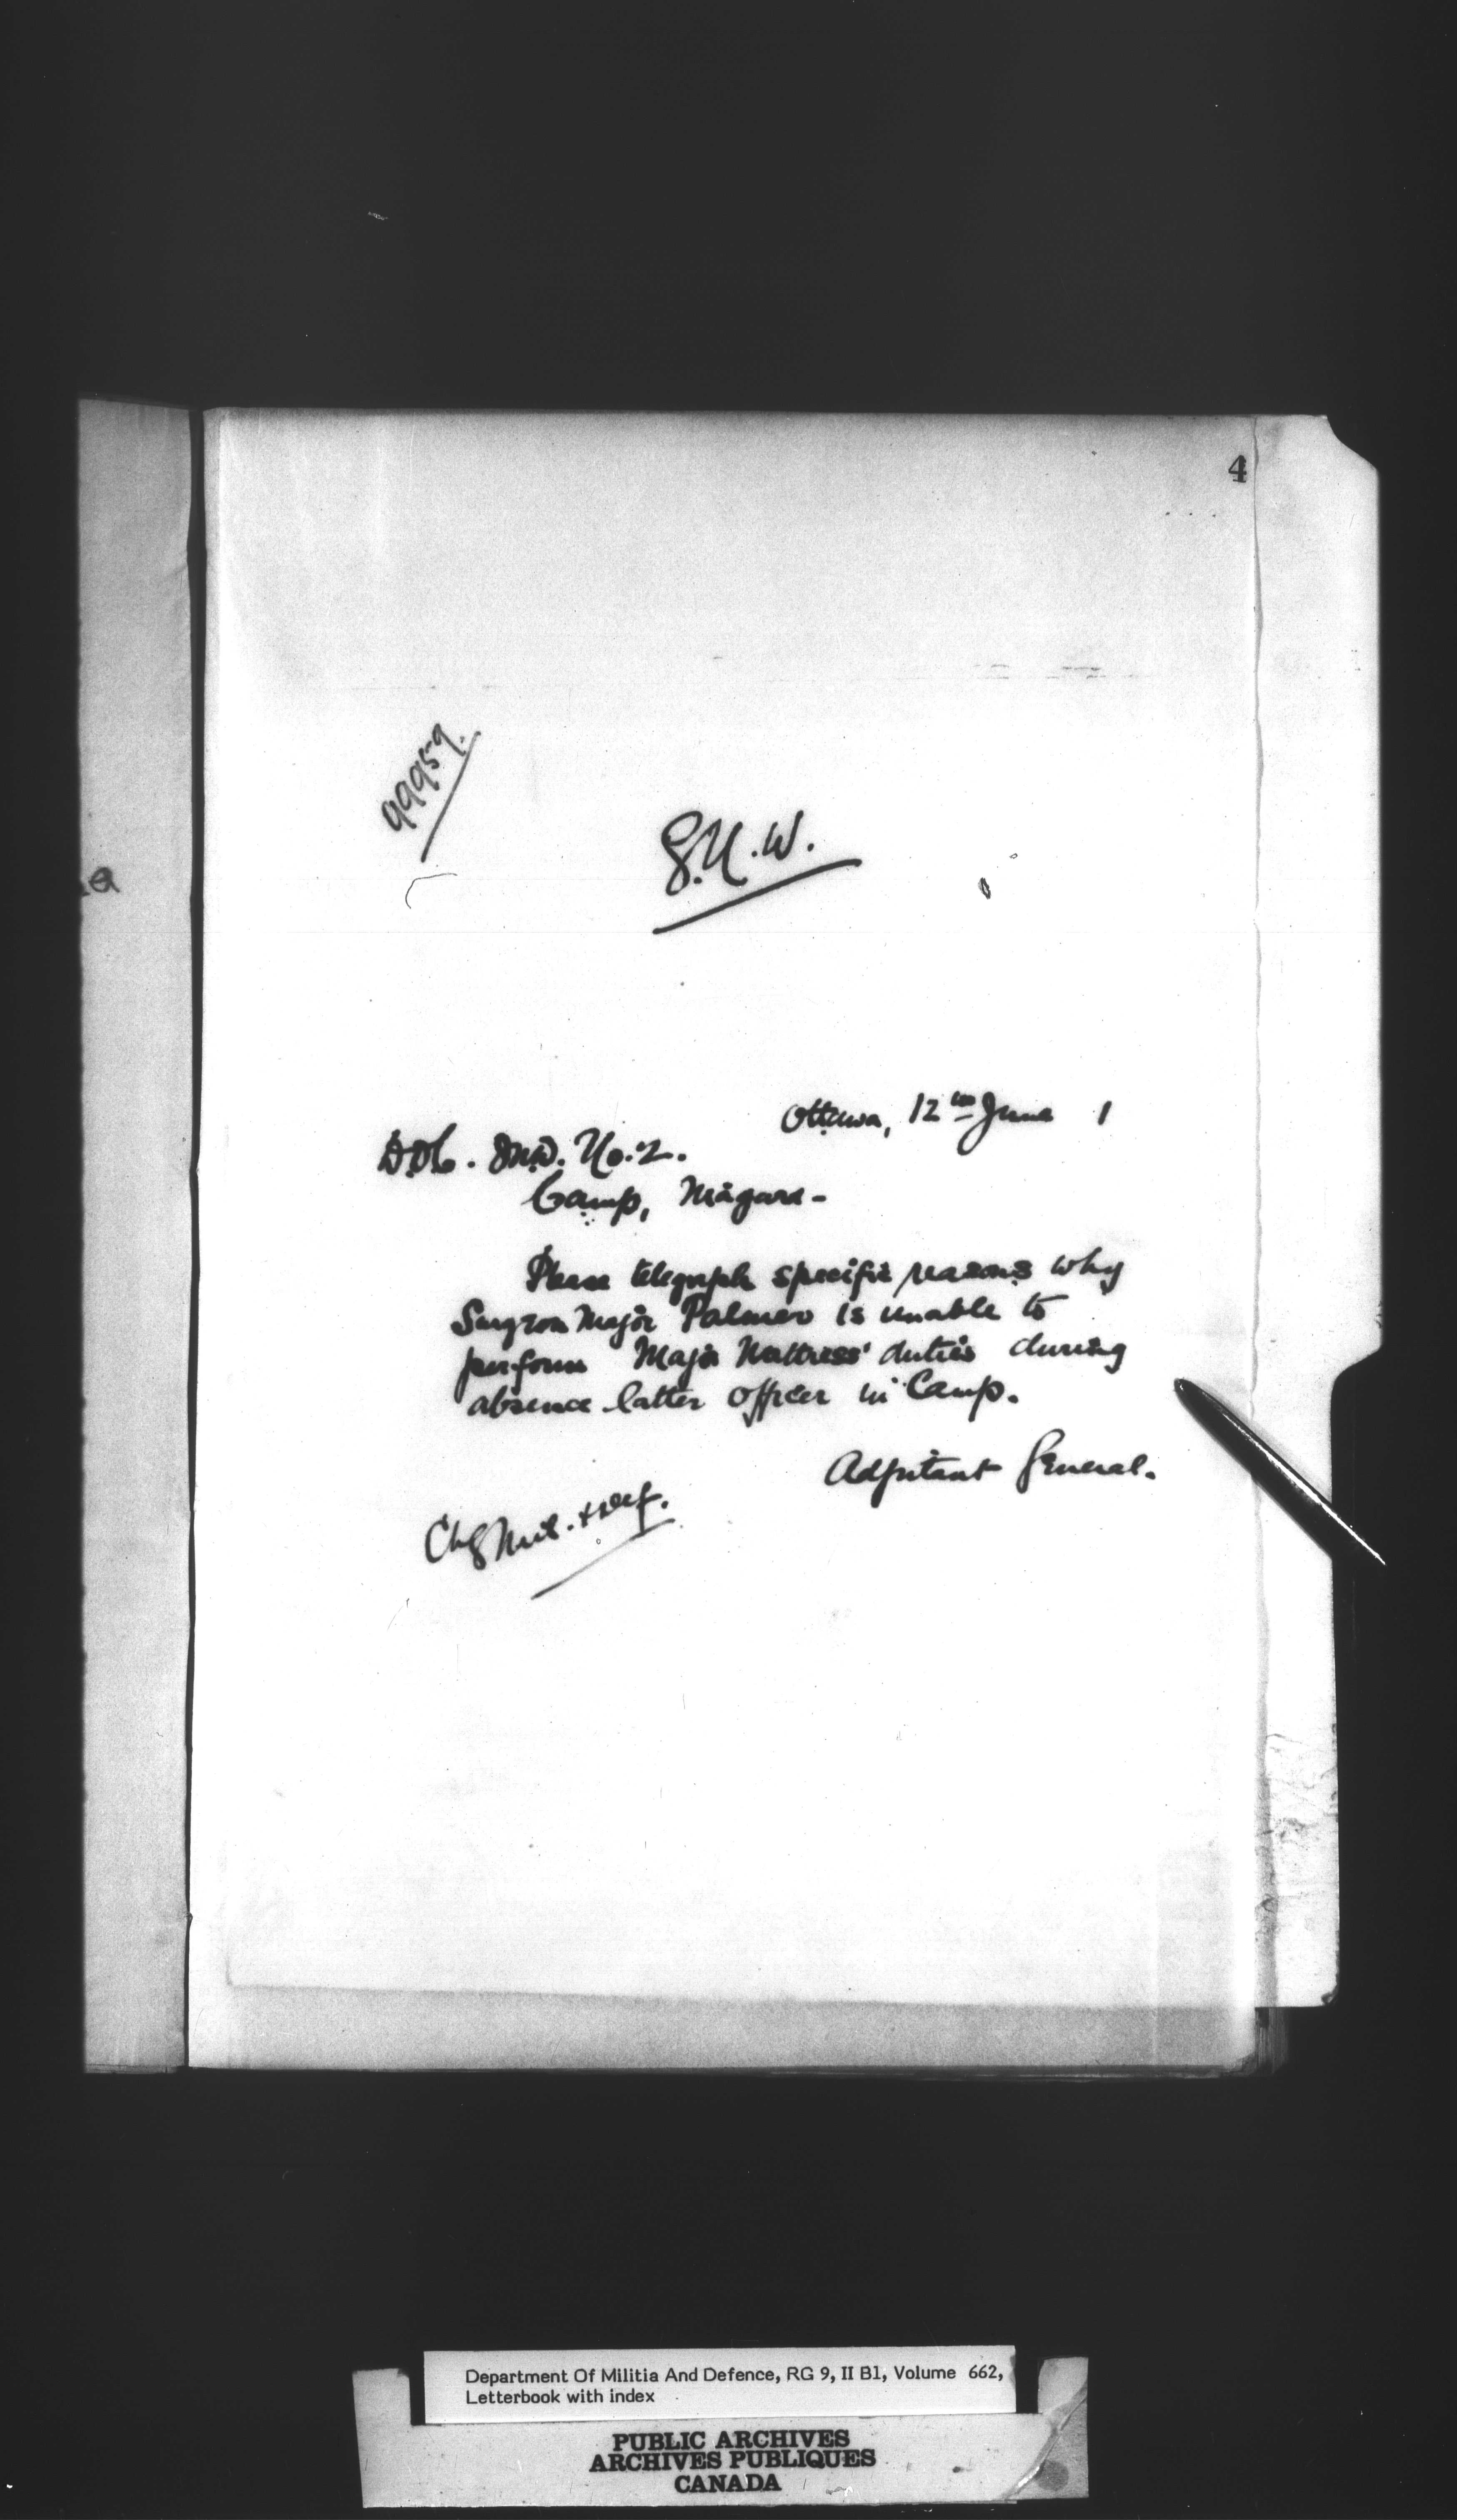 4
99959.
G.N.W.
Ottawa, 12th June 1
D.O.C. M.D. No. 2.
Camp, Niagara -
Please telegraph specific reasons why
Surgeon Major Palmer is unable to
perform Major Nattress' duties during
absence latter officer in Camp.
Adjutant General.
Chg Mil. & Def.
Department Of Militia And Defence, RG 9, II B1, Volume 662,
Letterbook with index
PUBLIC ARCHIVES
ARCHIVES PUBLIQUES
CANADA